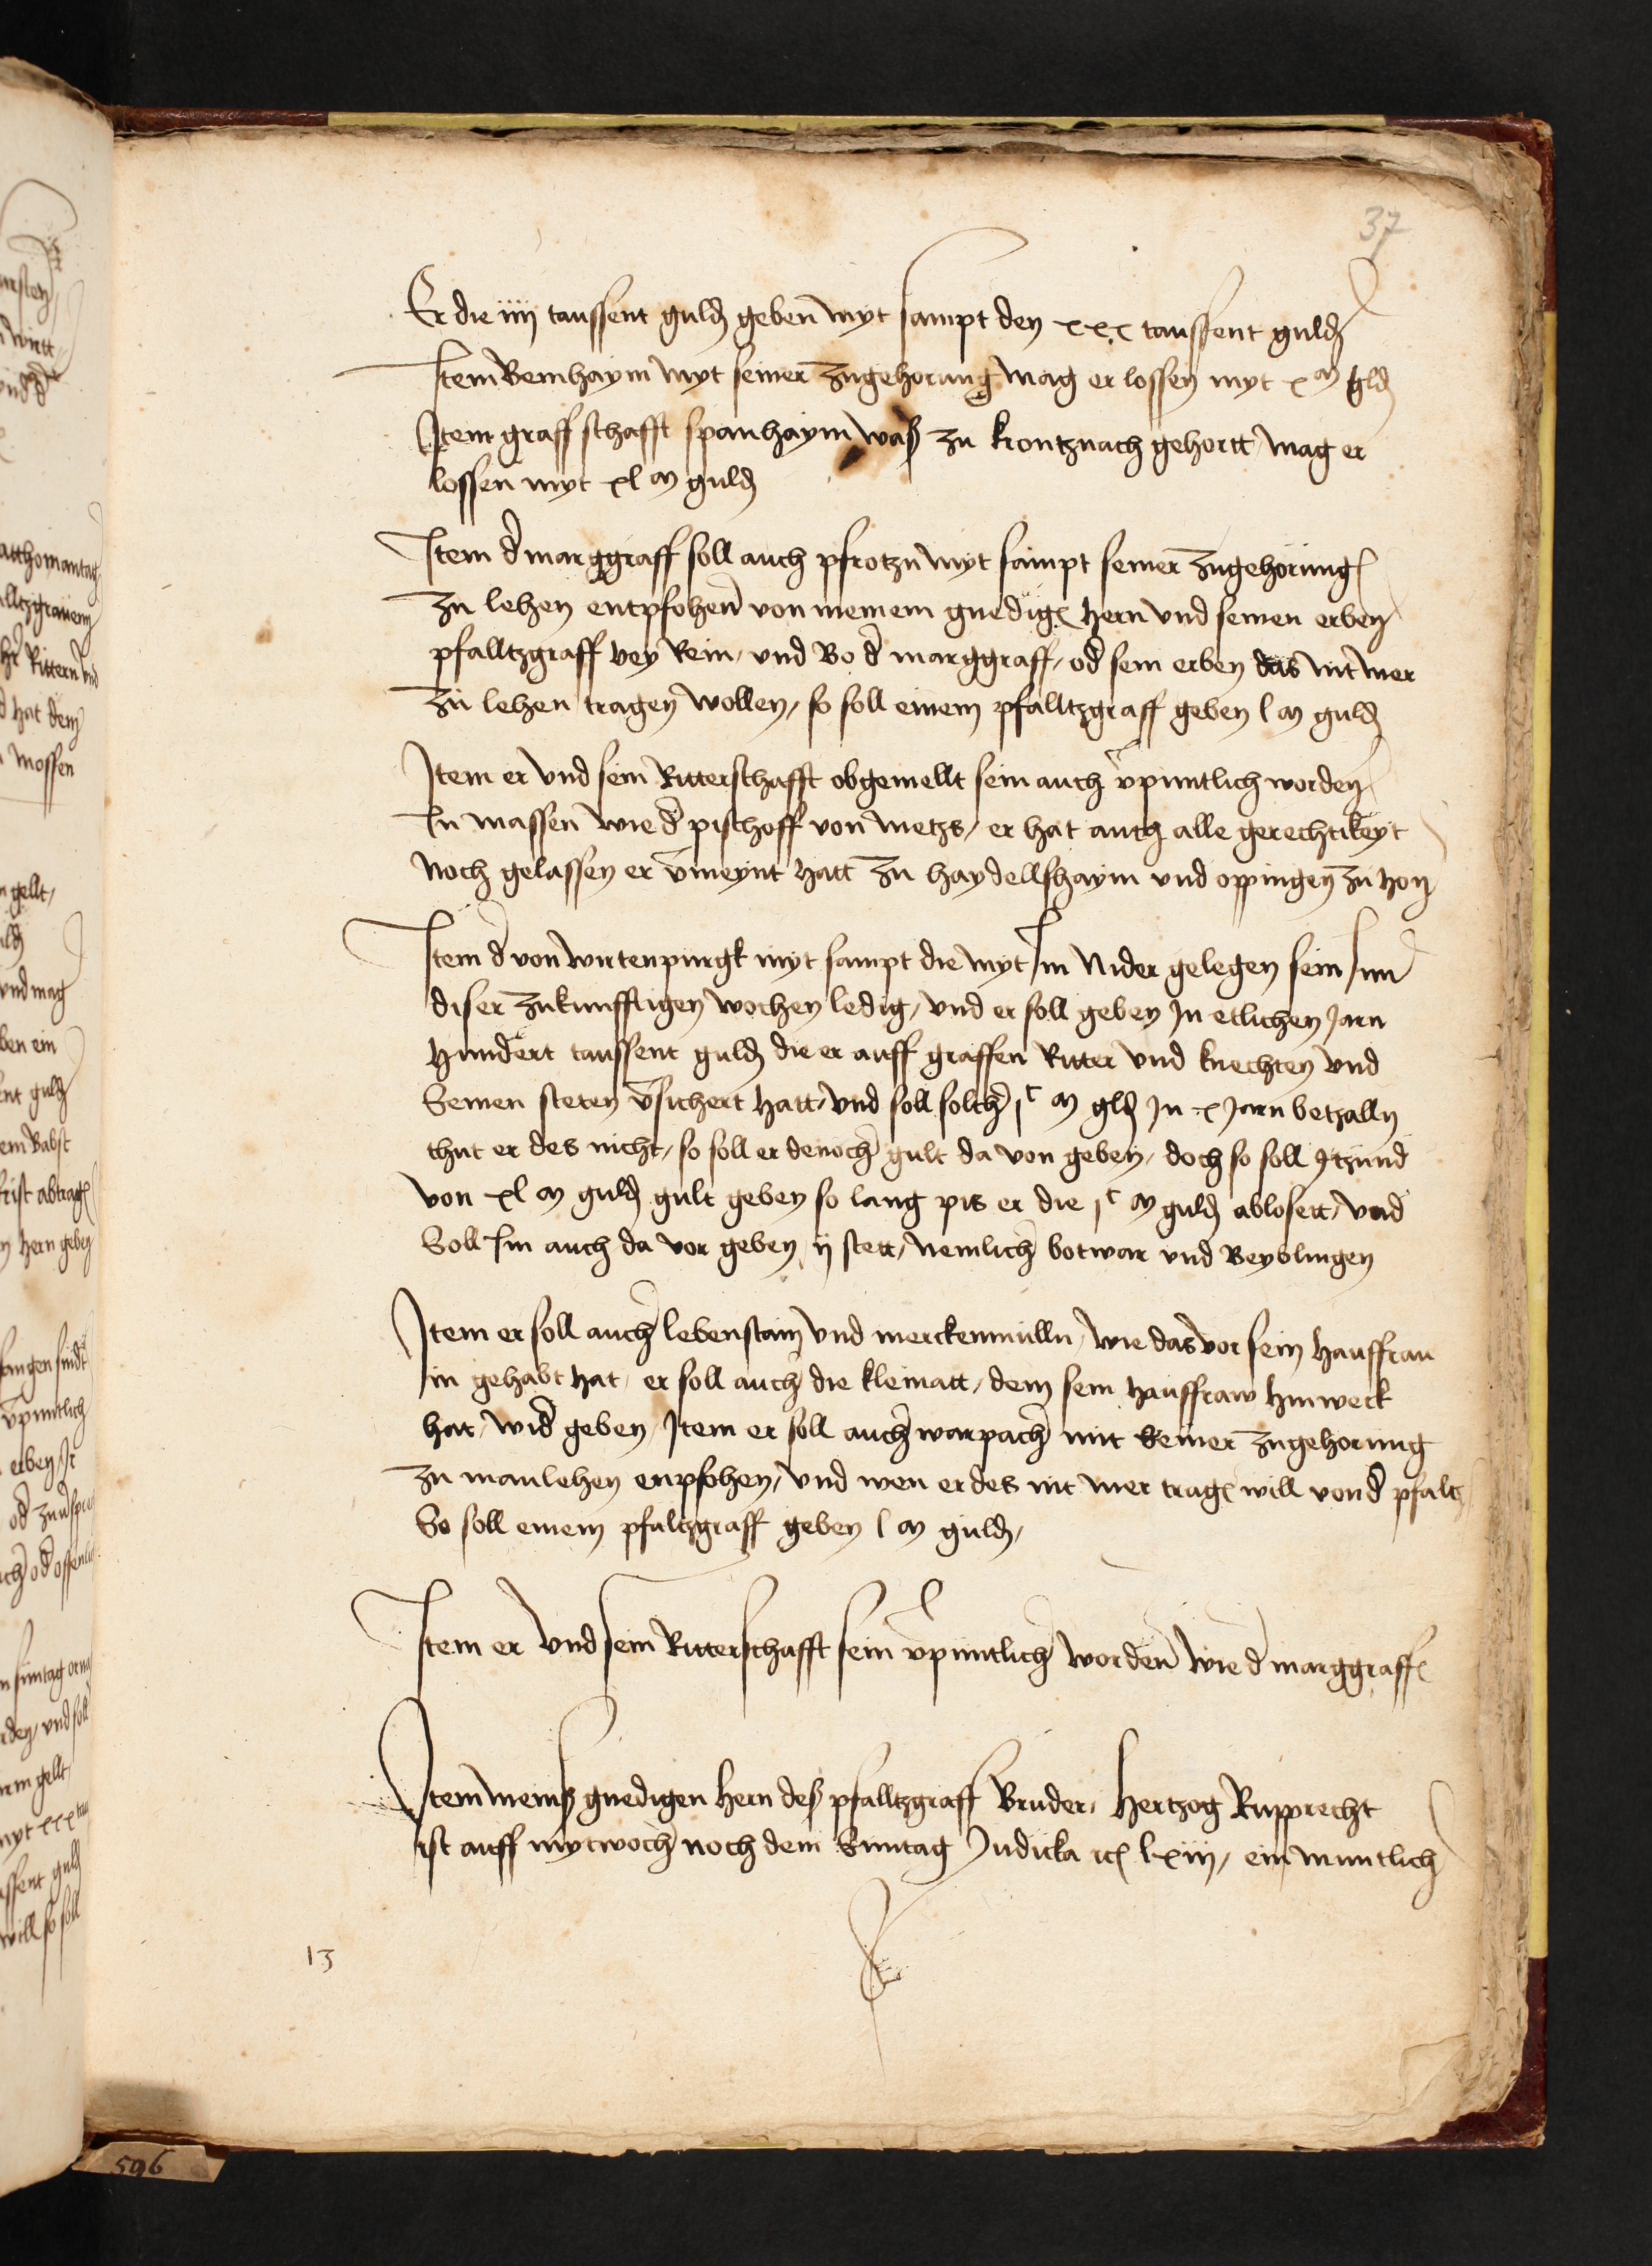 37
Er die iiij taussent guld geben myt sampt den xxx taussent guld
Item Beinhaym myt seiner zugehorung mag er lossen myt x m gld
Item graffschafft spanhaym was zu krontznach gehortt mag er
lossen myt xl m guld
Item d marggraff soll auch pfrotzn myt sampt seiner zugehorung
zu lehen entpfohen von meinem gnedig hern vnd seinen erben
pfalltzgraff bey Rein / vnd Wo d marggraff / od sein erben das nit mer
zu lehen tragen wollen / so soll einem pfalltzgraff geben l m guld
Item er vnd sein Ritterschafft obgemellt sein auch vpuntlich worden
In massen wie d pischoff von metzs / er hat auch alle gerechtikeyt
noch gelassen er vmeynt hatt zu haydellshaym vnd oppingen zu hon
Item d von wirtenpurgk myt sampt die myt Im Nider gelegen sein Im
diser zukunfftigen wochen ledig / vnd er soll geben In etlichen Jarn
hundert taussent guld die er auff graffen Ritter vnd knechten vnd
Seinen steten vsichert hatt / vnd soll solch jc m gld In x Jarn betzalln
thut er des nicht / so soll er denoch gult da von geben / doch so soll ytzund
von xl m guld gult geben so lang pis er die jc m guld ablosett / vnd
Soll Im auch da vor geben ij stett / nemlich botwar vnd Beyblingen
Item er soll auch lebenstain vnd merckenmulln / wie das vor sein hauffrau
in gehabt hat / er soll auch die kleinatt / dem sein hauffraw hinweck
hat / wid geben / Item er soll auch marpach mit seiner zugehorung
zu manlehen enpfohen / vnd wen er des nit mer trag will von d pfaltz
So soll einem pfaltzgraff geben l m guld /
Item er vnd sein Ritterschafft sein vpuntlich worden wie d marggraff
Item meins gnedigen hern des pfalltzgraff Bruder / Hertzog Rupprecht
ist auff mytwoch noch dem Suntag Judicka lxiij / ein muntlich
13
596